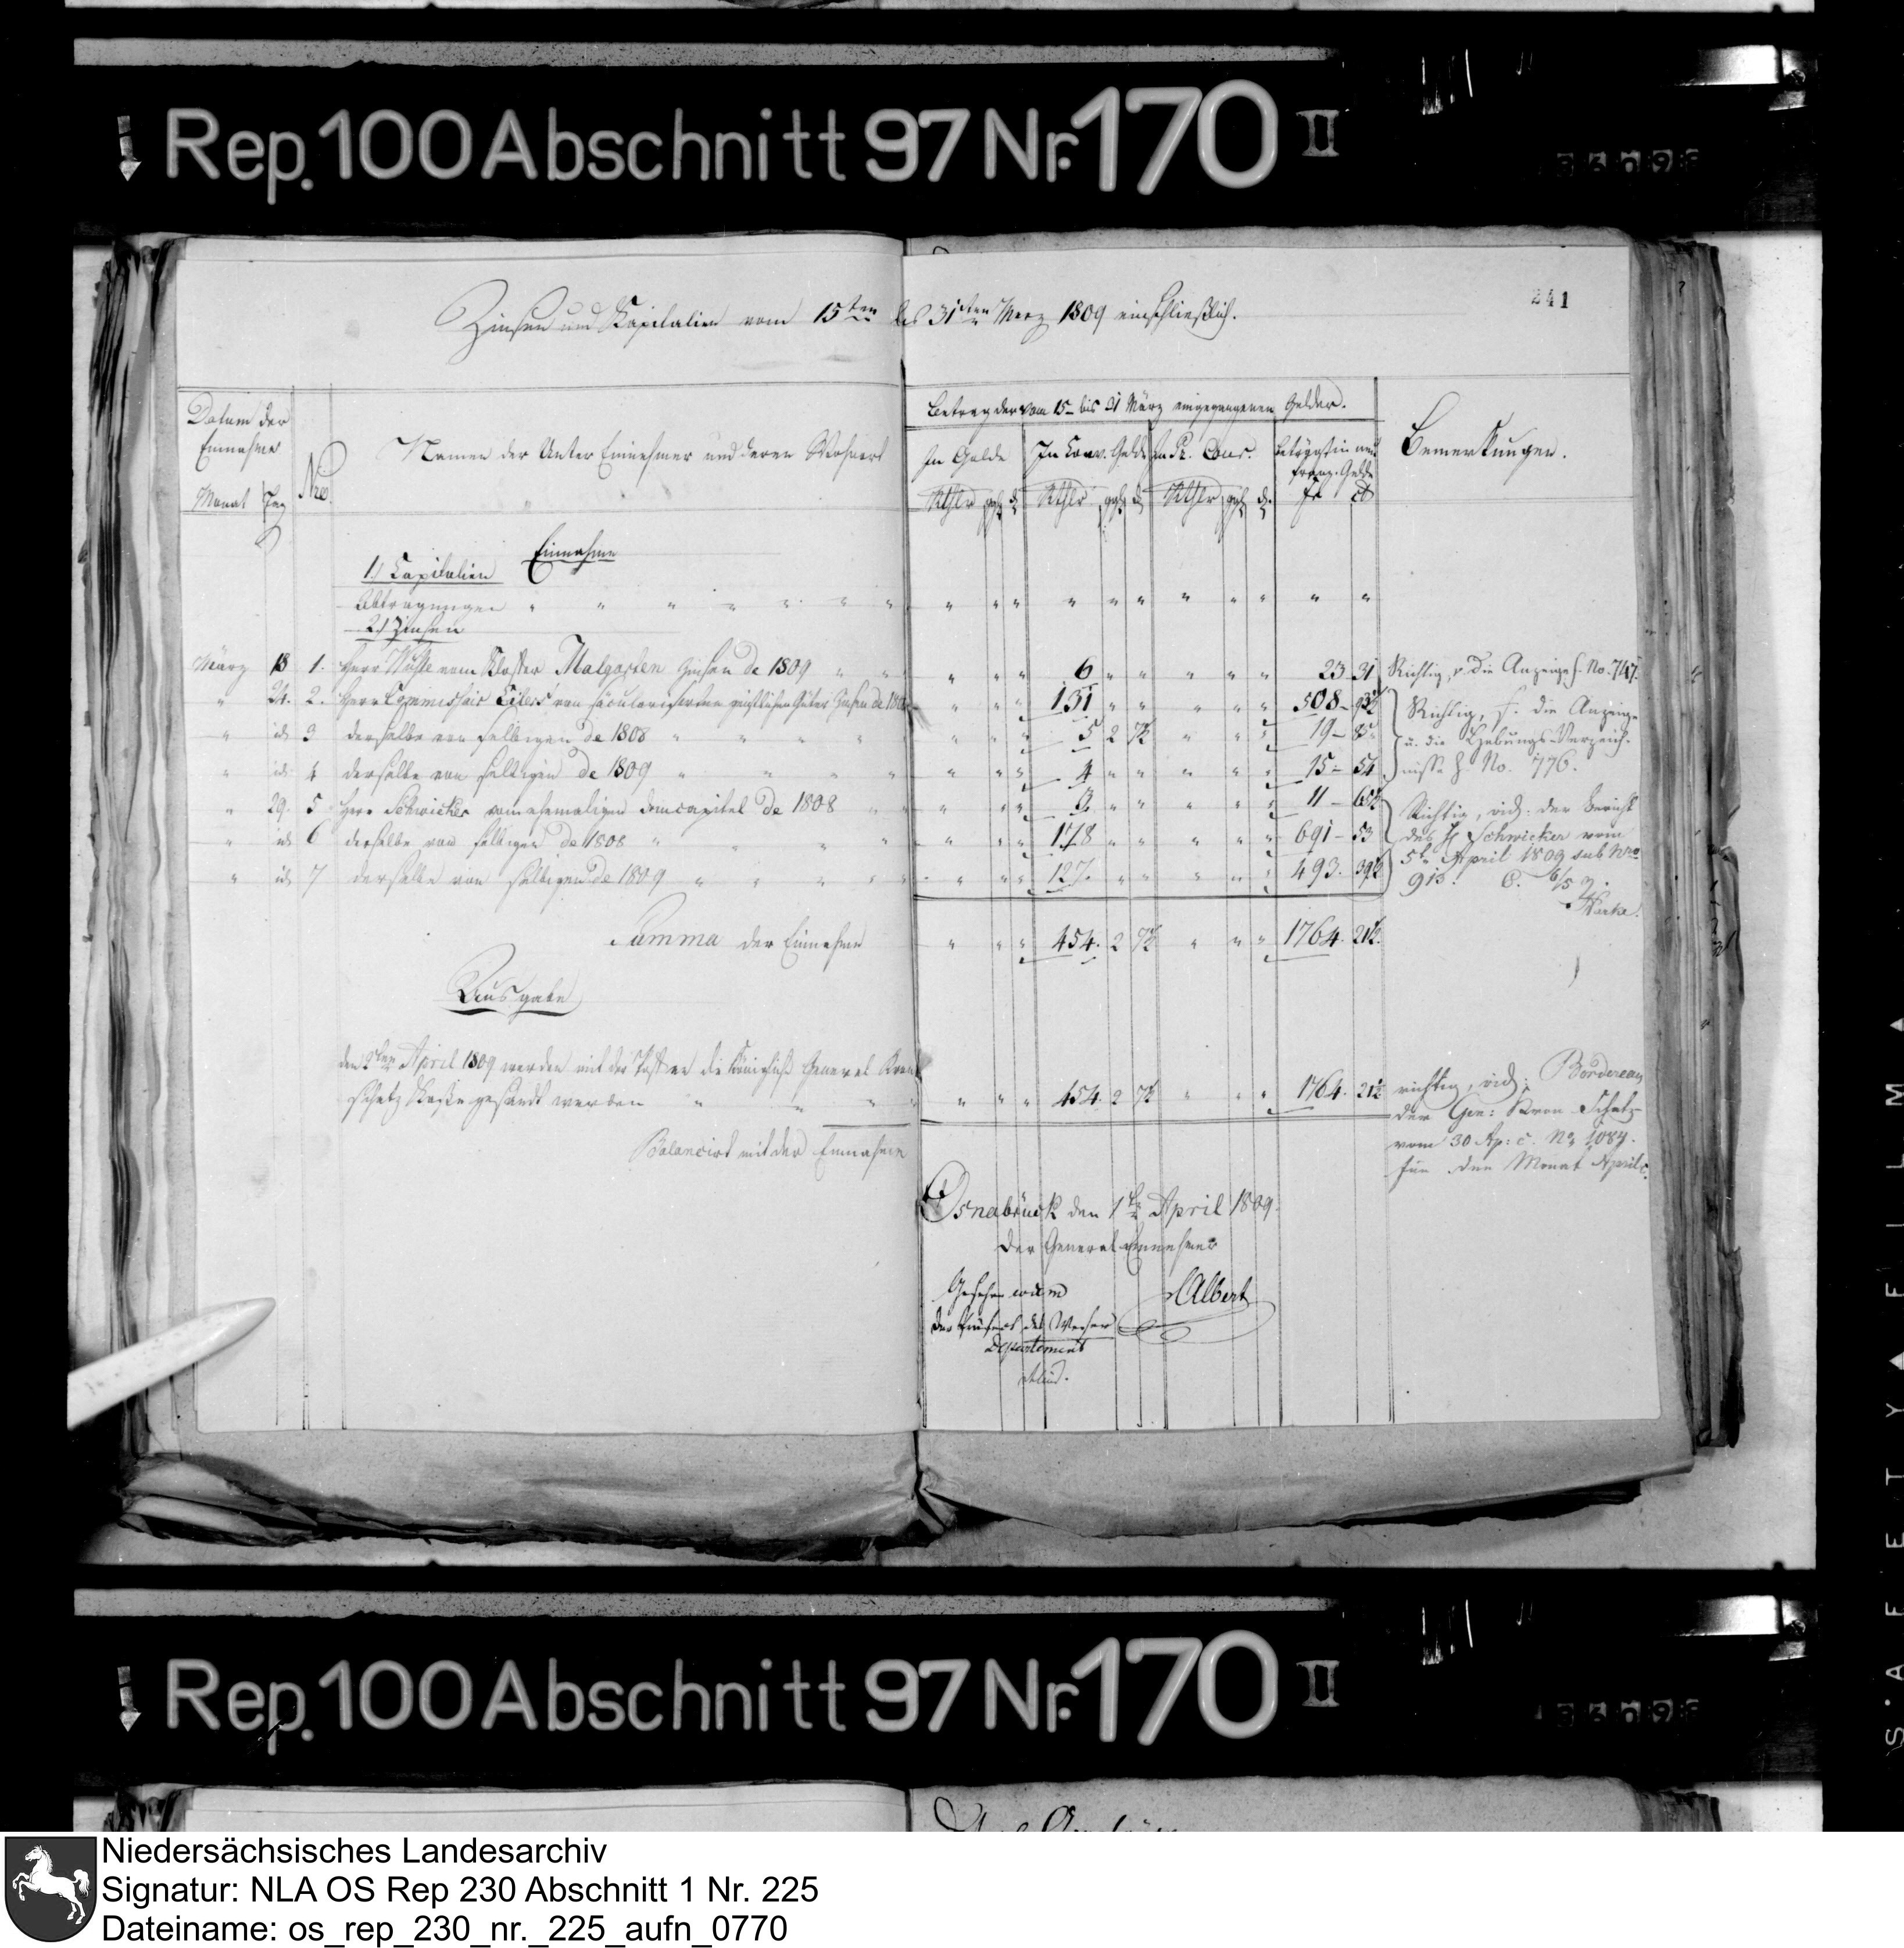 Rep. 100 Abschnitt 97 Nr. 170 II
241
Zinsen und Kapitalien vom 15ten bis 31sten Merz 1809 einschließlich.
Datum der Einnahme
Monat Tag
Nro
Namen der Unter Einnehmer und deren Wohnort
Betrag der vom 15- bis 31 März eingegangenen Gelder.
In Golde
In Conv. Gelde
In Pr. Cour.
beträgt in neu franz. Gelde
Rthlr ggl d
Rthlr ggl d
Rthlr ggl d
fr ct
Bemerkungen.
Einnahme
1.) Capitalien
Abtragungen " " " " " " "
2.) Zinsen
März 18 1. Herr Nolle vom Kloster Malgarten Zinsen de 1809 " " 6 " " 23 31
Richtig, v. die Anzeige s. No. 747.
" 24. 2. Herr Commissair Eilers von säcularisirten geistlichen Güter Zinsen de 1808 131 " " 508 - 93½
" id 3 derselbe von selbigen de 1808 " " 5 2 7½ 19 - 85
" id 4 derselbe von selbigen de 1809 " " 4 " " 15 - 54
Richtig, s. die Anzeige
u. die Hebungs-Verzeich-
nisse s. No. 776.
" 29. 5 Herr Schwicker vom ehemaligen Domcapitel de 1808 3 " " 11 - 65½
" id 6 derselbe von selbigen de 1808 " " 178 " " 691 - 53
" id 7 derselbe von selbigen de 1809 " " 127. " " 493. 39½
Richtig, vid. der Bericht
des H Schwicker vom
5t April 1809 sub Nro
913.
Summa der Einnahme " " " 454. 2 7½ " " " 1764. 21½.
Ausgabe
den 2ten April 1809 werden mit der Post an die Königliche General Kron
schatz Kasse gesandt werden " " " 454. 2 7½ " " " 1764. 21½
richtig, vid. Bordereau
der Gen: Kron Schatz
vom 30 Ap: c. No 1084.
für den Monat April c.
Balancirt mit der Einnahme
Osnabrück den 1ten April 1809.
Der General Einnehmer
Albert
Gesehen von
der Präfect des Weser
Departements
Rep. 100 Abschnitt 97 Nr. 170 II
SAFETY FILM
Niedersächsisches Landesarchiv
Signatur: NLA OS Rep 230 Abschnitt 1 Nr. 225
Dateiname: os_rep_230_nr._225_aufn_0770